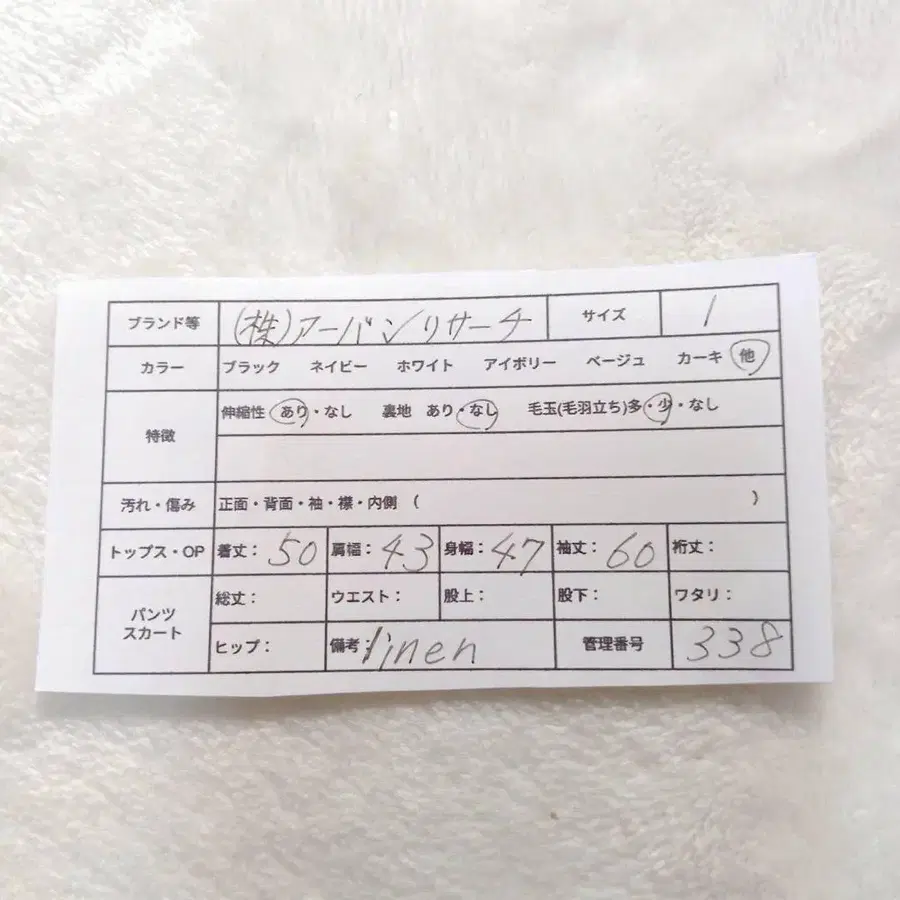 ブランド等 (株)アーバンリサーチ サイズ 1
カラー ブラック ネイビー ホワイト アイボリー ベージュ カーキ 他
特徴 伸縮性 あり・なし 裏地 あり・なし 毛玉(毛羽立ち)多・少・なし
汚れ・傷み 正面・背面・袖・襟・内側 ( )
トップス・OP 着丈: 50 肩幅: 43 身幅: 47 袖丈: 60 裄丈:
パンツ スカート 総丈: ウエスト: 股上: 股下: ワタリ:
ヒップ: 備考: linen 管理番号 338